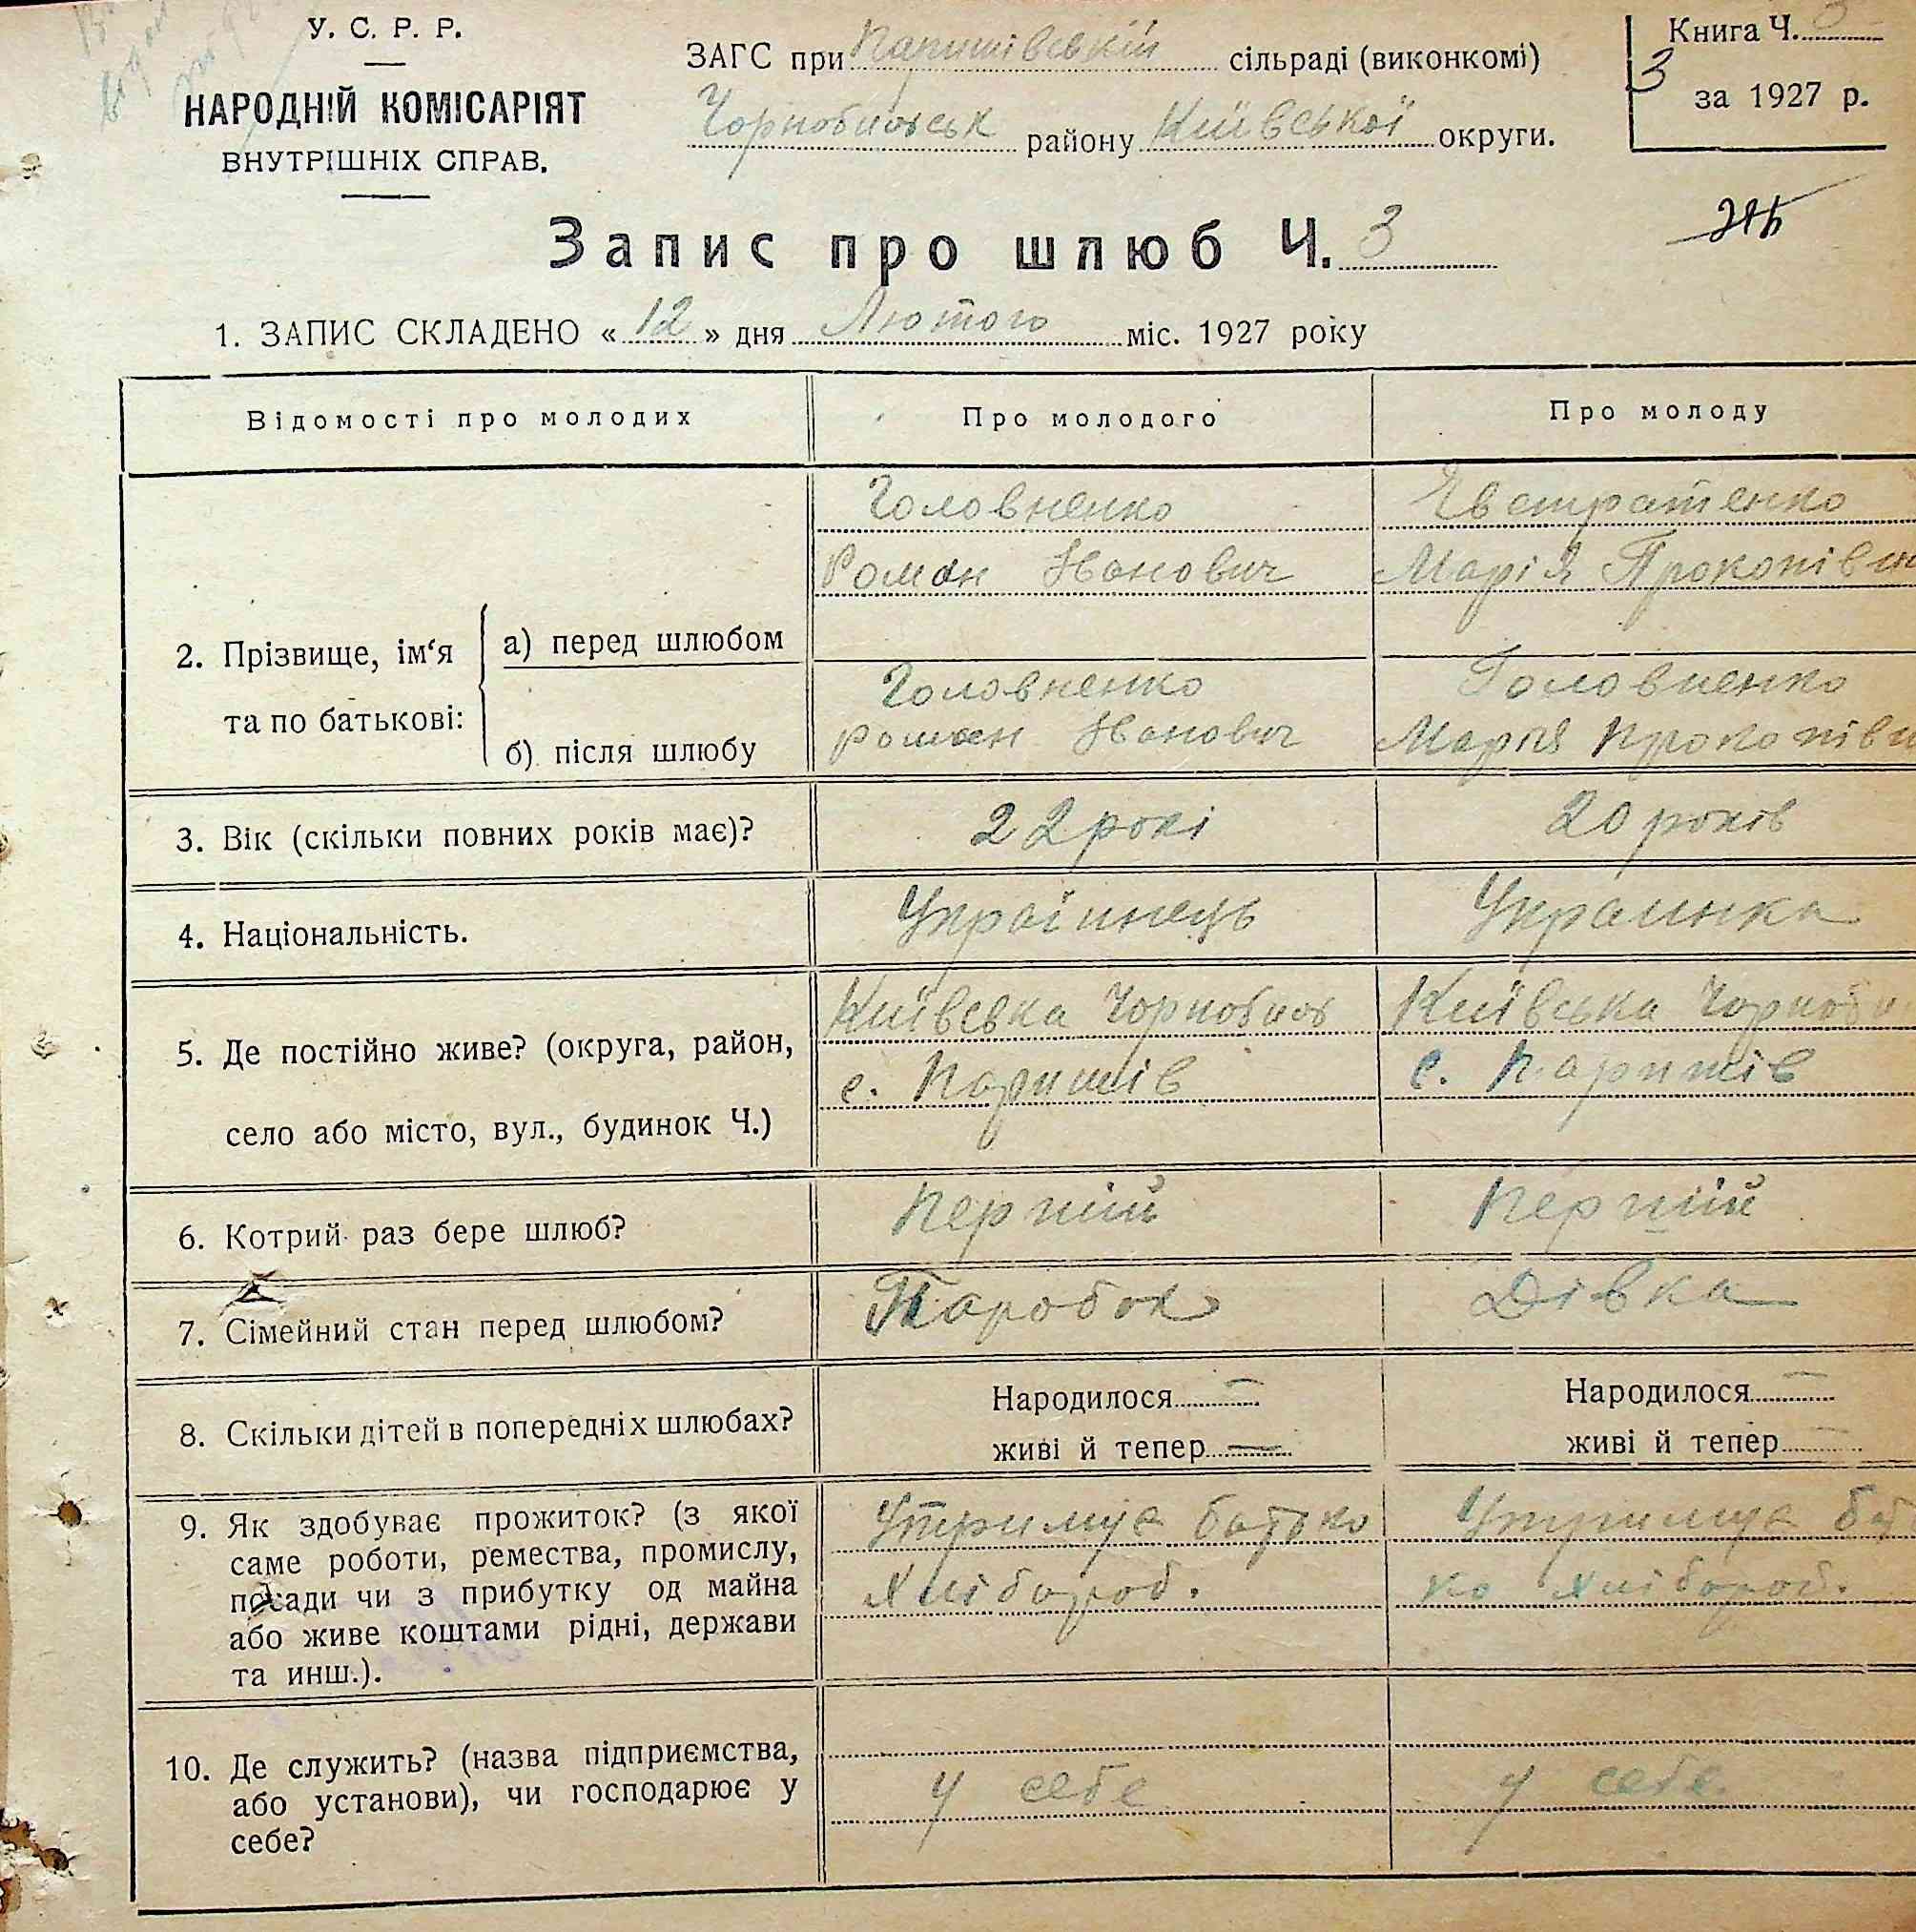 У. С. Р. Р.
НАРОДНІЙ КОМІСАРІЯТ
ВНУТРІШНІХ СПРАВ.
ЗАГС при Паришівській сільраді (виконкомі)
Чорнобильськ району Київської округи.
Книга Ч. 3
3
за 1927 р.
Запис про шлюб Ч. 3
1. ЗАПИС СКЛАДЕНО « 12 » дня Лютого міс. 1927 року
Відомості про молодих
Про молодого
Про молоду
2. Прізвище, ім‘я та по батькові:
а) перед шлюбом
Головненко
Роман Іванович
Євстратенко
Марія Прокопівн
б) після шлюбу
Головненко
Роман Іванович
Головненко
Марія Прокопівн
3. Вік (скільки повних років має)?
22 рокі
20 років
4. Національність.
Українець
Украинка
5. Де постійно живе? (округа, район,
село або місто, вул., будинок Ч.)
Київська Чорнобил
с. Паришів
Київська Чорноби
с. Паришів
6. Котрий раз бере шлюб?
Перший
Перший
7. Сімейний стан перед шлюбом?
Паробок
Дівка
8. Скільки дітей в попередніх шлюбах?
Народилося —
живі й тепер —
Народилося —
живі й тепер —
9. Як здобуває прожиток? (з якої
саме роботи, ремества, промислу,
посади чи з прибутку од майна
або живе коштами рідні, держави
та инш.).
Утримує батько
хлібороб.
Утримує бать
ко хлібороб.
10. Де служить? (назва підприємства,
або установи), чи господарює у
себе?
у себе
у себе